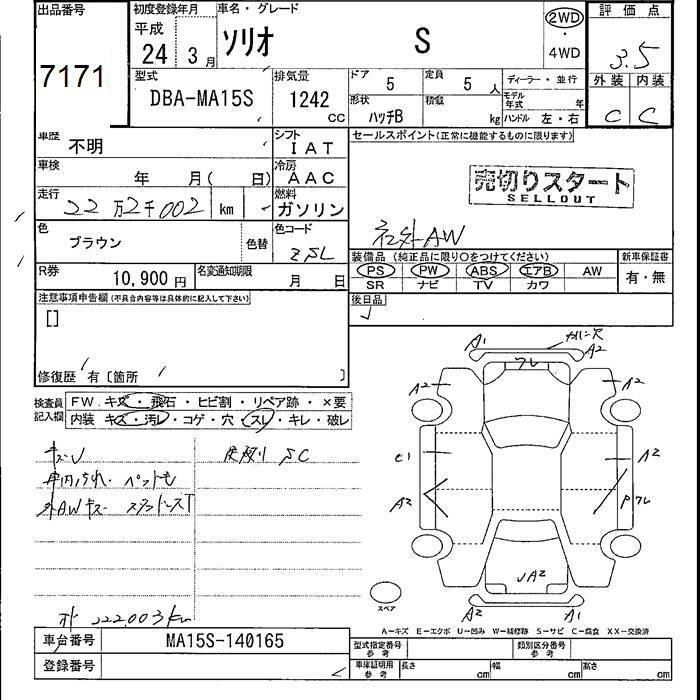 出品番号
7171
初度登録年月
平成
24 3月
車名・グレード
ソリオ S
2WD
・
4WD
評価点
3.5
外装 内装
C C
型式
DBA-MA15S
排気量
1242
CC
ドア 5
定員 5 人
形状
ハッチB
積載 kg
ディーラー・並行
モデル年式 年
ハンドル 左・右
車歴
不明
シフト
IAT
車検 年 月( 日)
冷房
AAC
走行 22万2千002 km
燃料
ガソリン
色
ブラウン
色替
色コード
ZSL
R券 10,900円
名変通知期限 月 日
セールスポイント(正常に機能するものに限ります)
売切りスタート
SELLOUT
社外AW
装備品 (純正品に限り○をつけてください)
PS PW ABS エアB AW
SR ナビ TV カワ
新車保証書
有・無
後日品
注意事項申告欄(不具合内容等は具体的に記入して下さい)
[]
修復歴 有〔箇所 〕
検査員記入欄
FW.キズ・飛石・ヒビ割・リペア跡・×要
内装 キズ・汚レ・コゲ・穴・スレ・キレ・破レ
車内汚れ・ペットモ
外AWキズ
SC
222003km
A1
A2
フレ
A2
A2
A2
A2
A2
A2
A1
スペア
A－キズ E－エクボ U－凹み W－補修跡 S－サビ C－腐食 XX－交換済
車台番号 MA15S-140165
登録番号
型式指定番号
参考
類別区分番号
参考
車庫証明用
参考
長さ cm
幅 cm
高さ cm